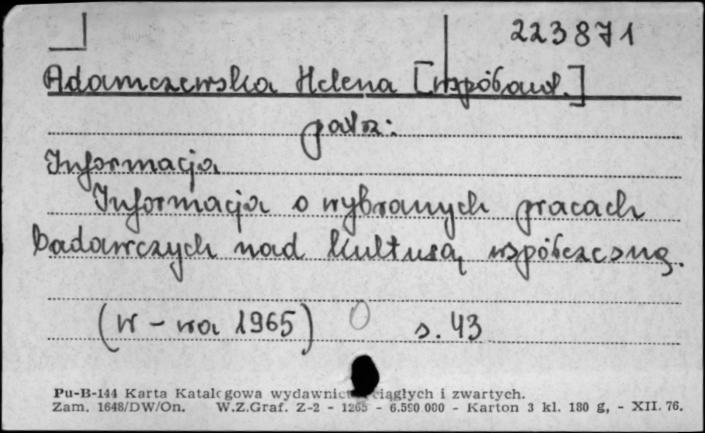 223871
Adamczewska Helena [współaut.]
patrz:
Informacja
Informacja o wybranych pracach
badawczych nad kulturą współczesną.
(W-wa 1965) s. 43
Pu-B-144 Karta Katalogowa wydawnictw ciągłych i zwartych.
Zam. 1648/DW/On. W.Z.Graf. Z-2 - 1265 - 6.590 000 - Karton 3 kl. 180 g, - XII. 76.